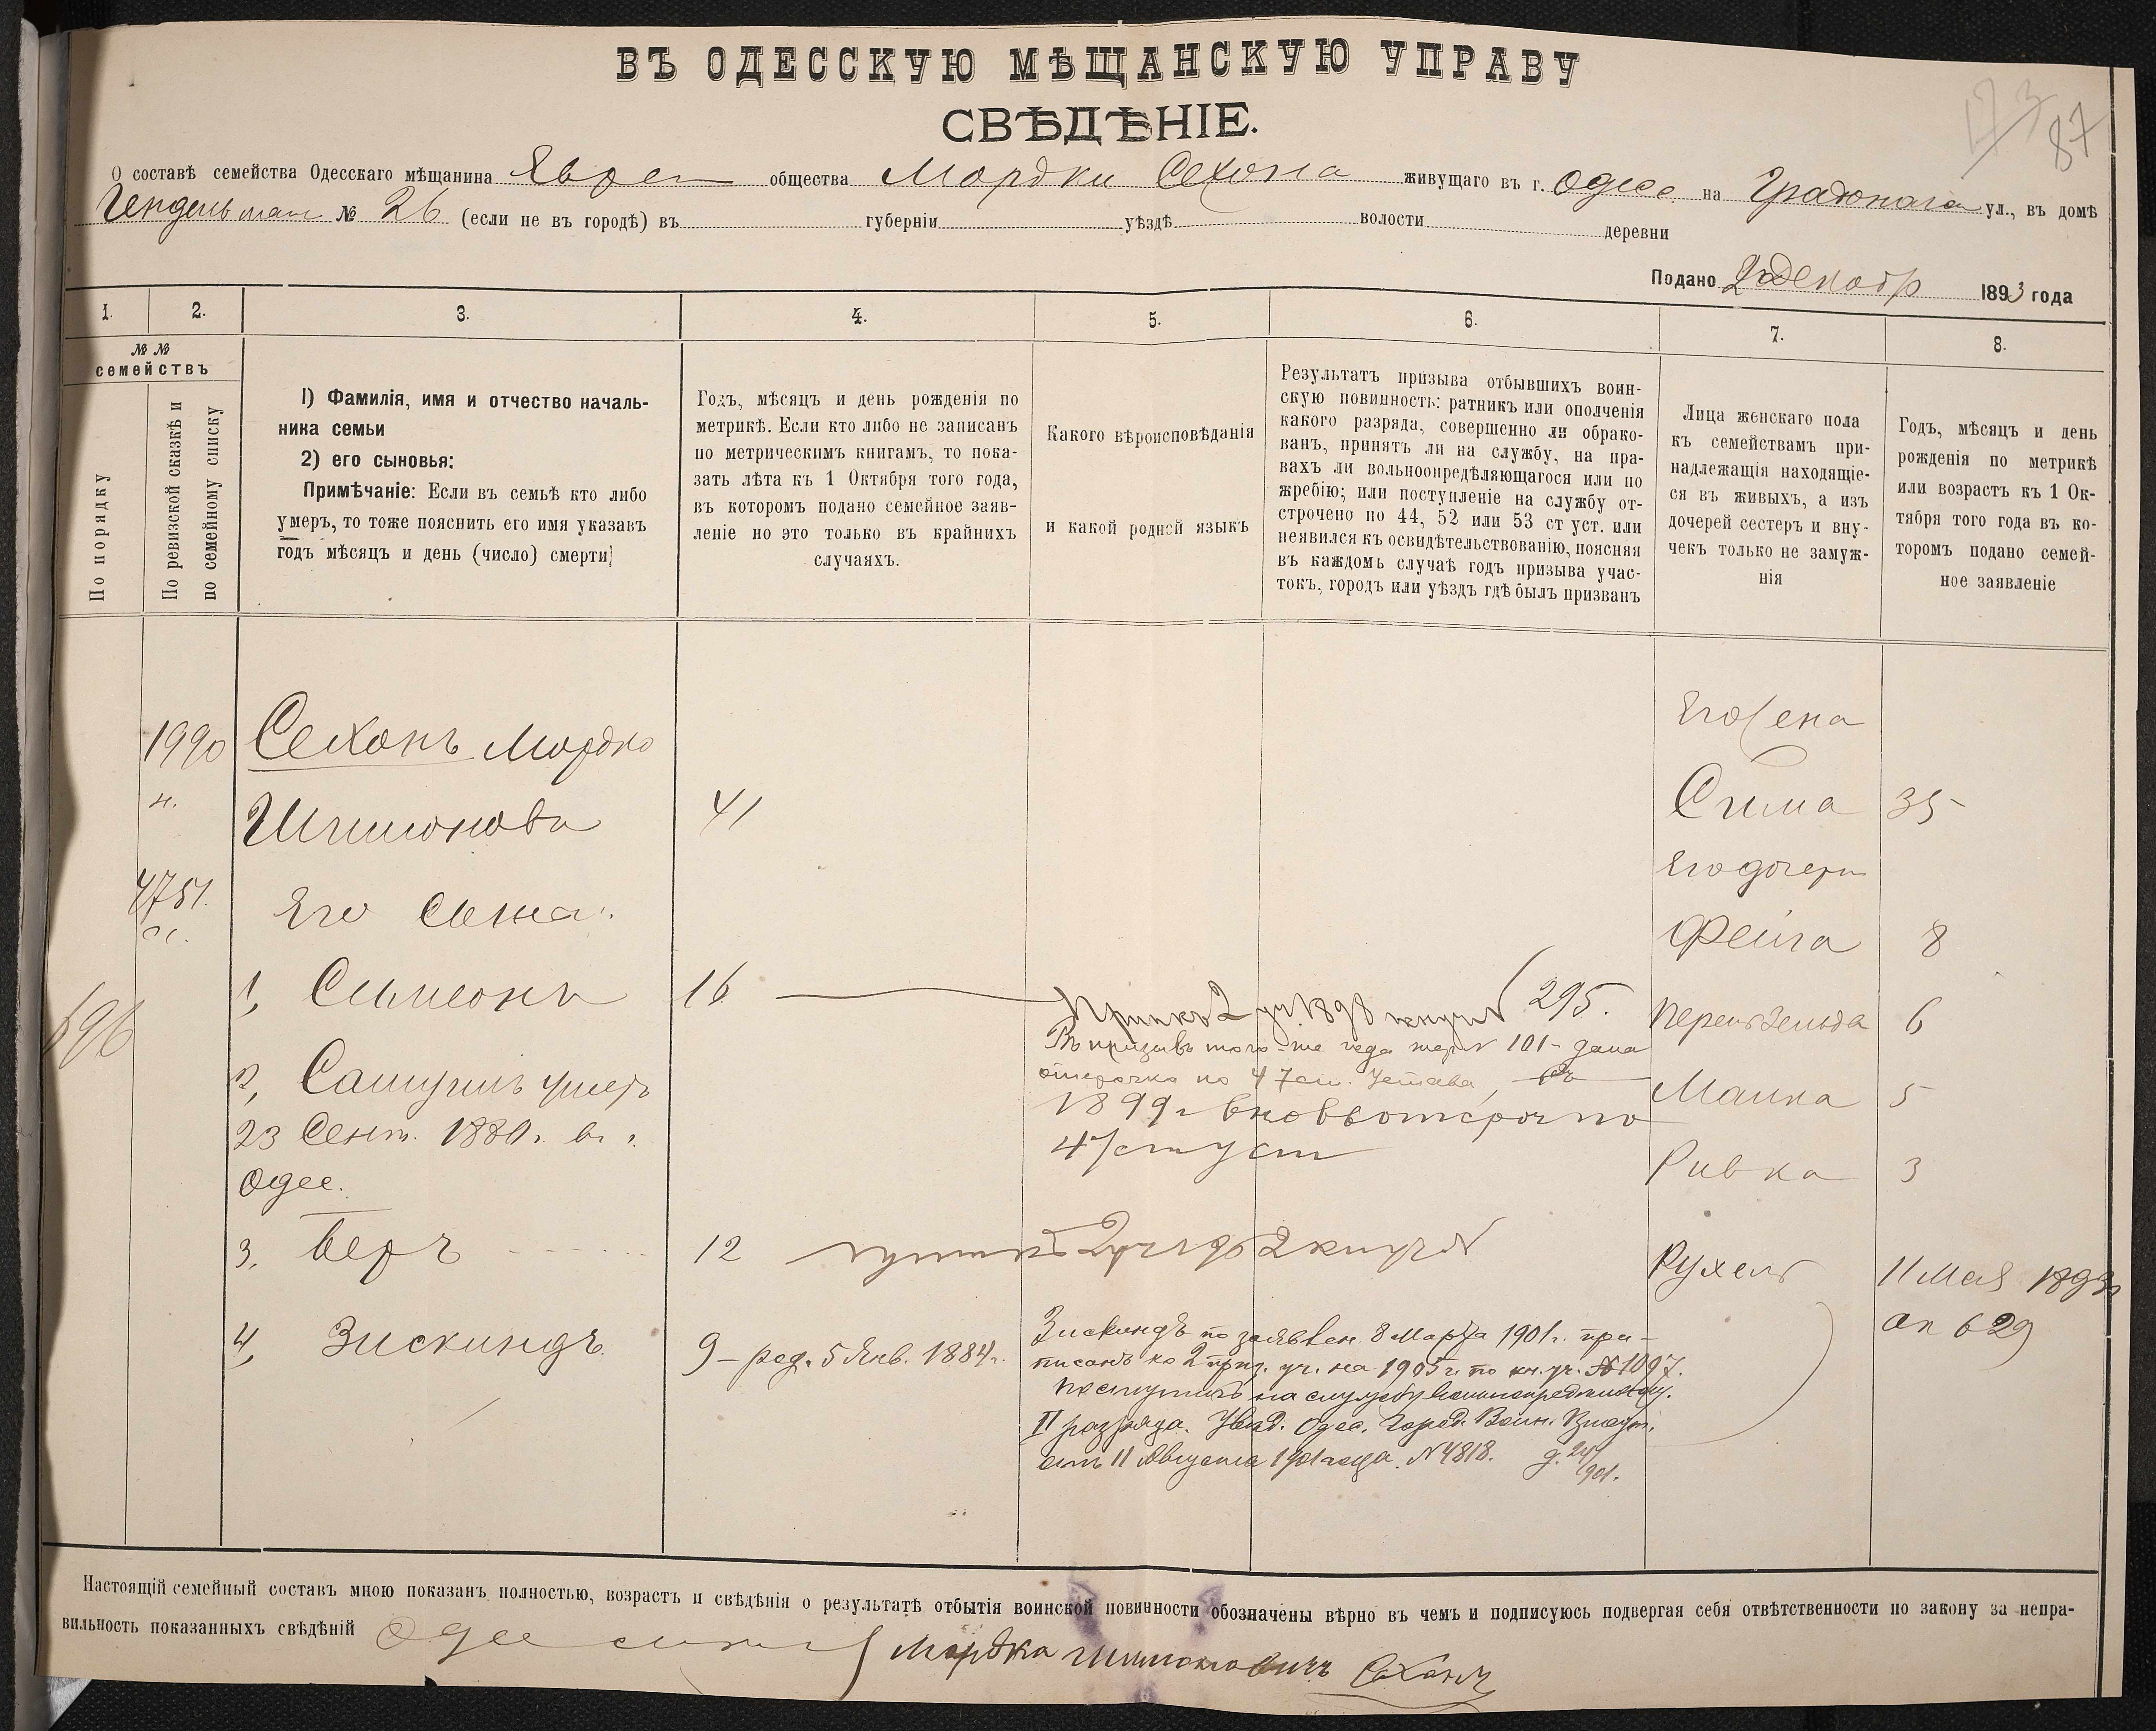 ВЪ ОДЕССКУЮ МѢЩАНСКУЮ УПРАВУ
СВѢДѢНІЕ.
173
87
О составѣ семейства Одесскаго мѣщанина Еврея общества Мордки Сехона живущаго въ г. Одесс. на ул., въ домѣ
Гендельман № 26 (если не въ городѣ) въ губерніи уѣздѣ волости деревни
Подано 2 декабр 1893 года
1. 2. 3. 4. 5. 6. 7. 8.
№ №
семействъ
По порядку
По ревизской сказкѣ и
по семейному списку
1) Фамилія, имя и отчество началь-
ника семьи
2) его сыновья:
Примѣчаніе: Если въ семьѣ кто либо
умеръ, то тоже пояснить его имя указавъ
годъ мѣсяцъ и день (число) смерти
Годъ, мѣсяцъ и день рожденія по
метрикѣ. Если кто либо не записанъ
по метрическимъ книгамъ, то пока-
зать лѣта къ 1 Октября того года,
въ которомъ подано семейное заяв-
леніе но это только въ крайнихъ
случаяхъ.
Какого вѣроисповѣданія
и какой родной языкъ
Результатъ призыва отбывшихъ воин-
скую повинность: ратникъ или ополченія
какого разряда, совершенно ли обрако-
ванъ, принятъ ли на службу, на пра-
вахъ ли вольноопредѣляющагося или по
жребію; или поступленіе на службу от-
строчено по 44, 52 или 53 ст уст. или
неявился къ освидѣтельствованію, поясняя
въ каждомъ случаѣ годъ призыва учас-
токъ, городъ или уѣздъ гдѣ былъ призванъ
Лица женскаго пола
къ семействамъ при-
надлежащія находящіе-
ся въ живыхъ, а изъ
дочерей сестеръ и вну-
чекъ только не замуж-
нія
Годъ, мѣсяцъ и день
рожденія по метрикѣ
или возрастъ къ 1 Ок-
тября того года въ ко-
торомъ подано семей-
ное заявленіе
1990
н.
4751.
с.
696
Сехонъ Мордко
Шимонова 41
Его сына:
1, Симеонъ 16
295.
Въ призывъ того-же года жер № 101 - дана
отсрочка по 47 ст. Устава, въ
1899 г вновь отсроч по
47 ст уст
2, Самуилъ умеръ
23 Сент. 1880 г. в г.
Одес.
3. Беръ 12
4, Зискиндъ 9 - род. 5 Янв. 1884 г.
Зискиндъ по заявлен. 8 Марта 1901 г. при-
писанъ ко 2 приз. уч. на 1905 г. по кн. уч. № 1097.
поступилъ на службу вольноопредѣляющ.
II разряда. Увѣд. Одес. Город. Воин. Присут.
отъ 11 Августа 1901 года. № 4818. д. 24/901.
Его жена
Сима 35
Его дочери
Фейга 8
Перель Зельда 6
Малка 5
Ривка 3
Рухель 11 Мая 1893 г
ак 629
Настоящій семейный составъ мною показанъ полностью, возрастъ и свѣдѣнія о результатѣ отбытія воинской повинности обозначены вѣрно въ чемъ и подписуюсь подвергая себя отвѣтственности по закону за непра-
вильность показанныхъ свѣдѣній Мордка Шимоновичъ Сахонъ